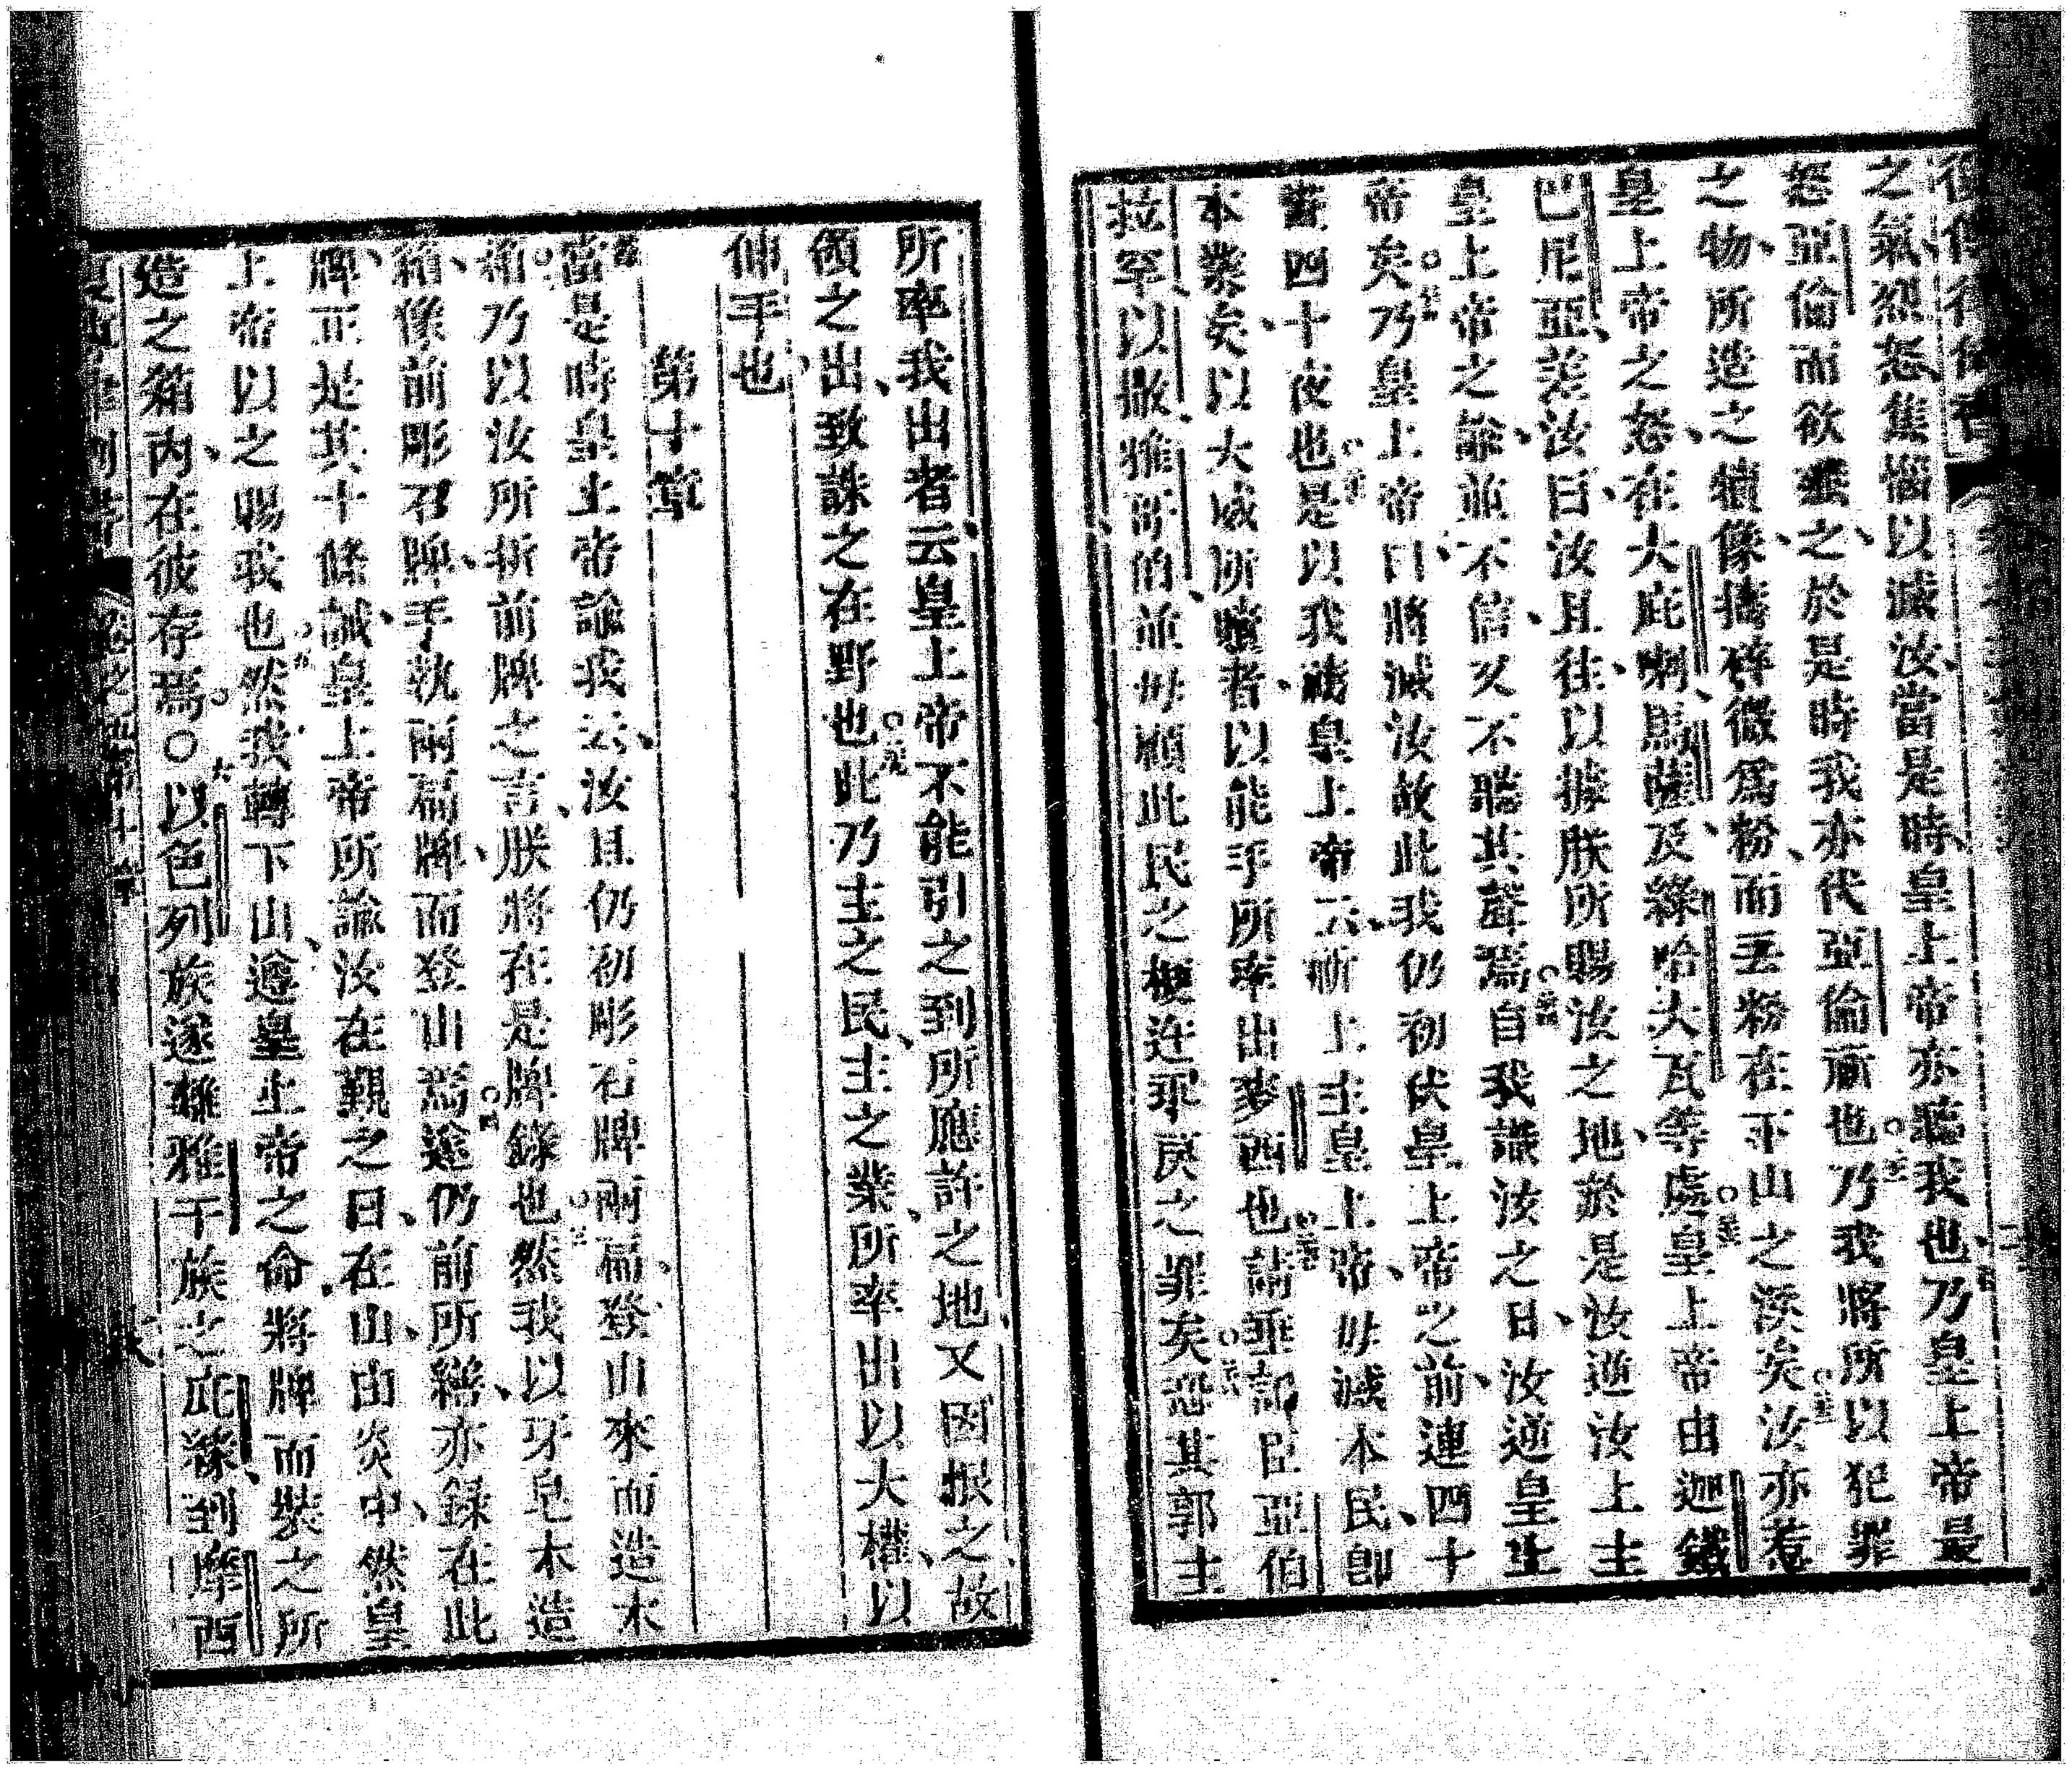 之氣烈怒焦惱以滅汝當是時皇上帝亦聽我也乃皇上帝最
怒亞倫而欲壞之於是時我亦代亞倫祈也乃我將所以犯罪
之物所造之犢像擣碎微爲粉而丟粉在下山之溪矣汝亦惹
皇上帝之怒在大庇喇馬薩及綠哈大瓦等處皇上帝由迦鐵
巴尼亞差汝曰汝且往以據朕所賜汝之地於是汝逆汝上主
皇上帝之諭並不信又不聽其聲焉自我識汝之日汝逆皇上
帝矣乃皇上帝曰將滅汝故此我仍初伏皇上帝之前連四十
晝四十夜也是以我禱皇上帝云祈上主皇上帝毋滅本民卽
本業矣以大威所贖者以能手所率出麥西也請垂記臣亞伯
拉罕以撒雅哥的並毋顧此民之梗迕乖戾之罪矣恐其郭主
所率我出者云皇上帝不能引之到所應許之地又因恨之故
領之出致誅之在野也此乃主之民主之業所率出以大權以
伸手也
第十章
當是時皇上帝諭我云汝且仍初彫石牌兩扁登山來而造木
箱乃以汝所折前牌之言朕將在是牌錄也然我以牙皂木造
箱像前彫石牌手執兩扁牌而登山焉遂仍前所繕亦錄在此
牌正是其十條誡皇上帝所諭汝在覲之日在山由炎中然皇
上帝以之賜我也然我轉下山遵皇上帝之命將牌而裝之所
造之箱內在彼存焉〇以色列族遂離雅干族之庇綠到摩西